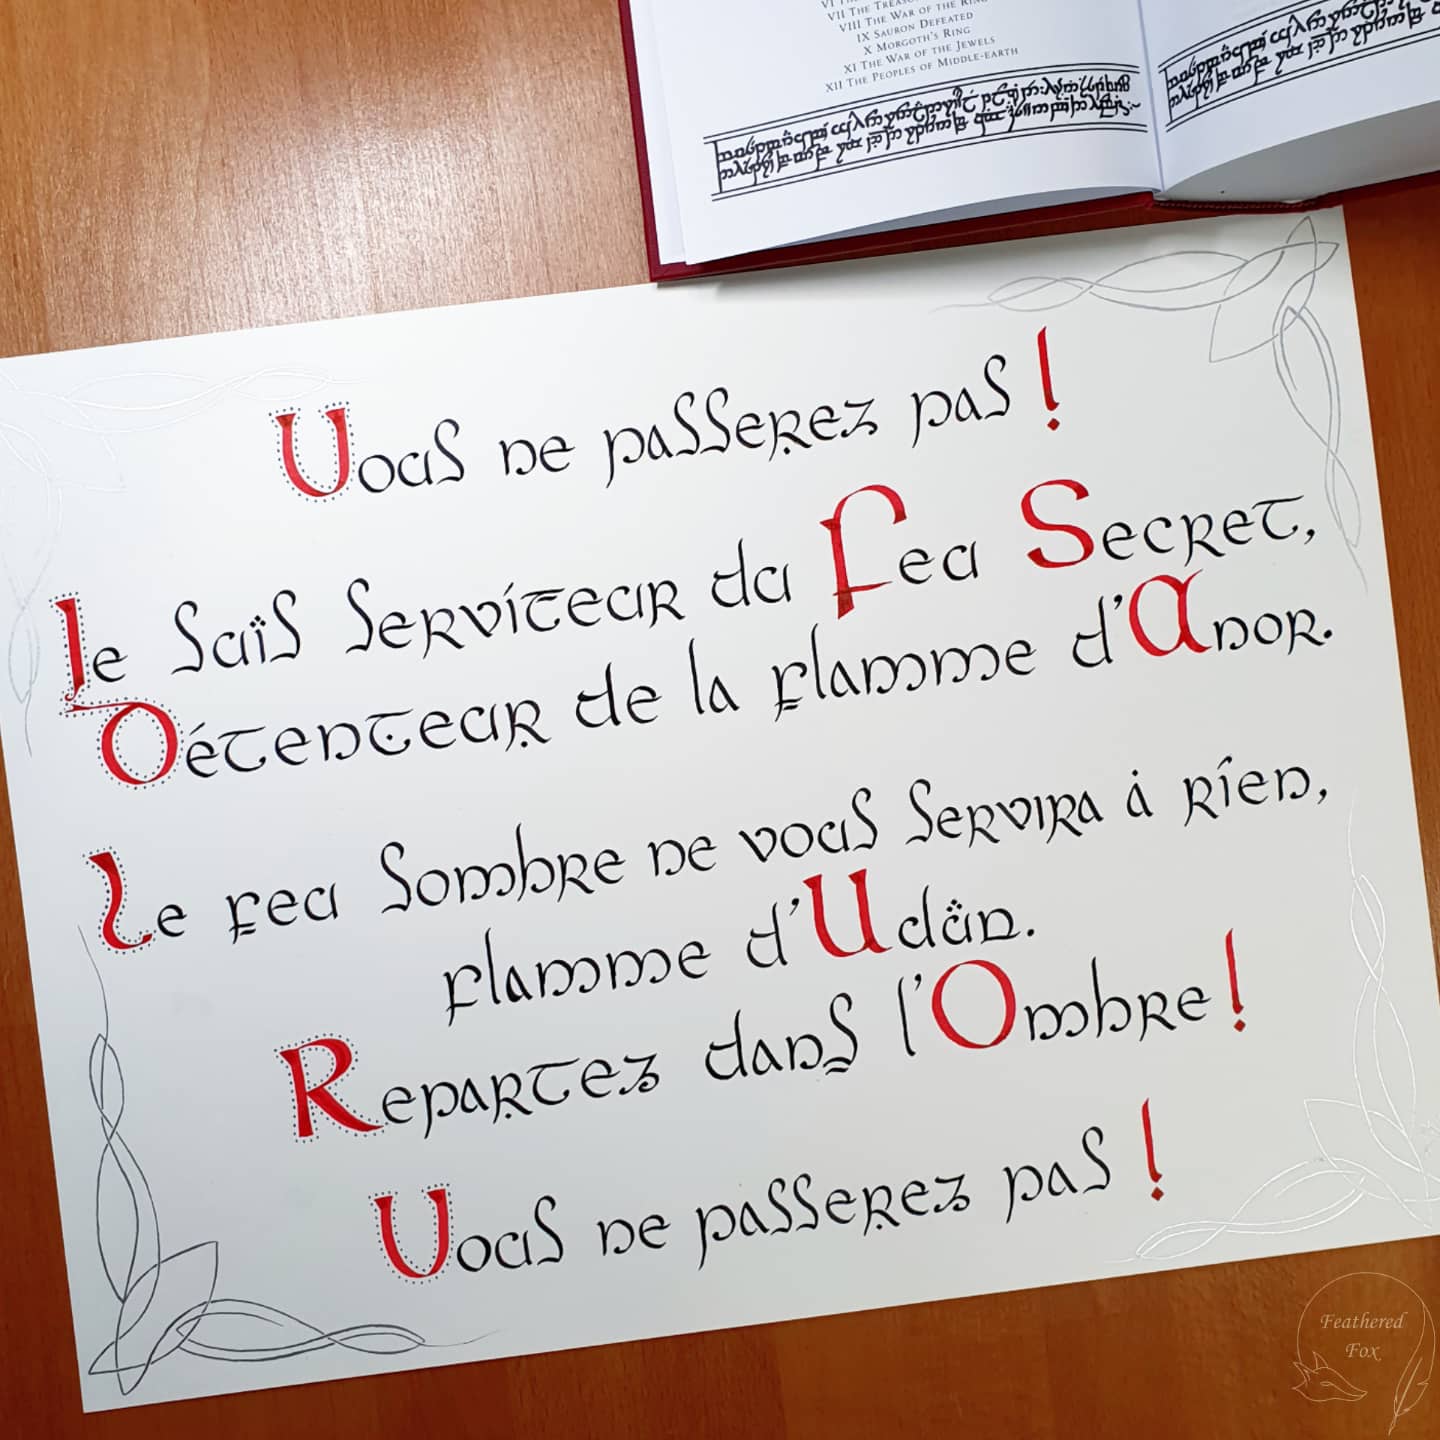 VII The Treason
VIII The War of the Ring
IX Sauron Defeated
X Morgoth's Ring
XI The War of the Jewels
XII The Peoples of Middle-earth
Vous ne passerez pas !
Je suis serviteur du Feu Secret,
Détenteur de la flamme d'Anor.
Le feu sombre ne vous servira à rien,
flamme d'Udûn.
Repartez dans l'Ombre !
Vous ne passerez pas !
Feathered
Fox